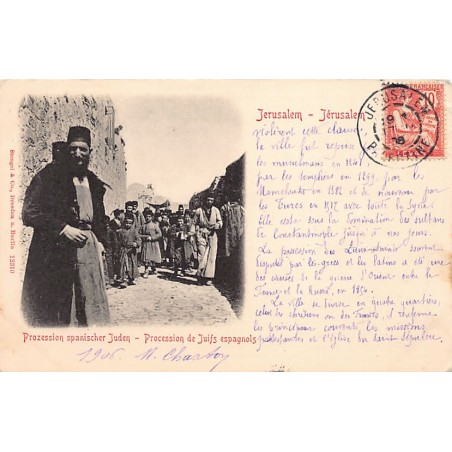 Jerusalem - Jérusalem
JERUSALEM
PALESTINE
10
violèrent cette clause
la ville fut reprise
les musulmans en
par les templiers en par les
Mamelouks en 1382 et à nouveau par
les Turcs en 1517 avec toute la Syrie.
Elle resta sous la domination des sultans
de Constantinople jusqu'à nos jours.
La possession des Lieux-saints souvent
disputés par les grecs et les latins a été une
des causes de la guerre d'Orient entre la
France et la Russie, en 1854.
La ville se divise en quatre quartiers,
celui des chrétiens ou des Francs, il renferme
les principaux couvents, les missions
protestantes et l'Eglise du Saint Sépulcre.
Stengel & Co., Dresden u. Berlin 12910
Prozession spanischer Juden - Procession de Juifs espagnols
1906 M.